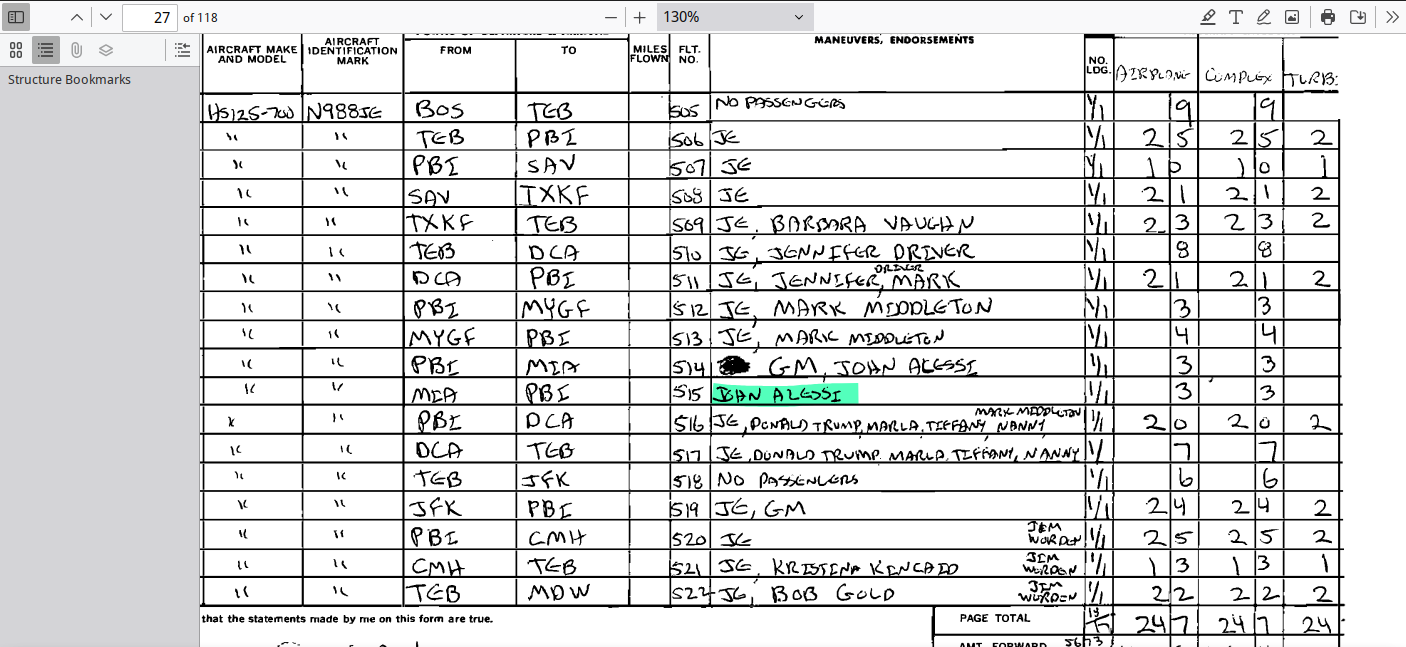 27 of 118 130%
Structure Bookmarks
AIRCRAFT MAKE AND MODEL AIRCRAFT IDENTIFICATION MARK FROM TO MILES FLOWN FLT. NO. MANEUVERS, ENDORSEMENTS NO. LDG. AIRPLANE COMPLEX TURB.
HS125-700 N988JE BOS TEB 505 NO PASSENGERS 1/1 9 9
" " TEB PBI 506 JE 1/1 2 5 2 5 2
" " PBI SAV 507 JE 1/1 1 0 1 0 1
" " SAV TXKF 508 JE 1/1 2 1 2 1 2
" " TXKF TEB 509 JE, BARBARA VAUGHN 1/1 2 3 2 3 2
" " TEB DCA 510 JE, JENNIFER DRIVER 1/1 8 8
" " DCA PBI 511 JE, JENNIFER DRIVER, MARK 1/1 2 1 2 1 2
" " PBI MYGF 512 JE, MARK MIDDLETON 1/1 3 3
" " MYGF PBI 513 JE, MARK MIDDLETON 1/1 4 4
" " PBI MIA 514 GM, JOHN ALESSI 1/1 3 3
" " MIA PBI 515 JOHN ALESSI 1/1 3 3
" " PBI DCA 516 JE, DONALD TRUMP, MARLA, TIFFANY, NANNY MARK MIDDLETON 1/1 2 0 2 0 2
" " DCA TEB 517 JE, DONALD TRUMP, MARLA, TIFFANY, NANNY 1/ 7 7
" " TEB JFK 518 NO PASSENGERS 1/1 6 6
" " JFK PBI 519 JE, GM 1/1 2 4 2 4 2
" " PBI CMH 520 JE JIM WORDEN 1/1 2 5 2 5 2
" " CMH TEB 521 JE, KRISTINA KINCAID JIM WORDEN 1/1 1 3 1 3 1
" " TEB MDW 522 JE, BOB GOLD JIM WORDEN 1/1 2 2 2 2 2
that the statements made by me on this form are true. PAGE TOTAL 24 7 24 7 24
AMT. FORWARD 5673